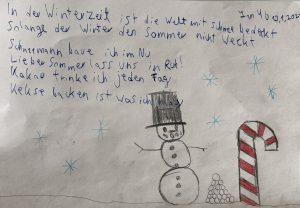 In der Winterzeit ist die Welt mit Schnee bedeckt
Solange der Winter den Sommer nicht weckt
Schneemann baue ich im Nu
Lieber Sommer lass uns in Ruh!
Kakao trinke ich jeden Tag
Kekse backen ist was ich mag